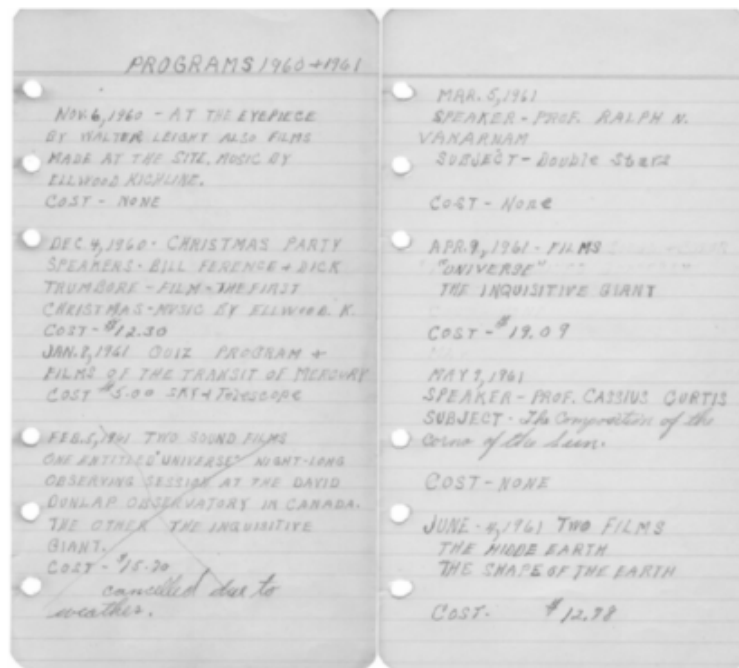 PROGRAMS 1960 + 1961
NOV. 6, 1960 - AT THE EYEPIECE
BY WALTER LEIGHT ALSO FILMS
MADE AT THE SITE. MUSIC BY
ELLWOOD KICHLINE.
COST - NONE
DEC. 4, 1960 - CHRISTMAS PARTY
SPEAKERS - BILL FERENCE + DICK
TRUMBORE - FILM - THE FIRST
CHRISTMAS - MUSIC BY ELLWOOD. K.
COST - $12.30
JAN. 8, 1961 QUIZ PROGRAM +
FILMS OF THE TRANSIT OF MERCURY
COST $5.00 SKY + Telescope
FEB. 5, 1961 TWO SOUND FILMS
ONE ENTITLED "UNIVERSE" NIGHT-LONG
OBSERVING SESSION AT THE DAVID
DUNLAP OBSERVATORY IN CANADA.
THE OTHER THE INQUISITIVE
GIANT.
COST - $15.20
cancelled due to
weather.
MAR. 5, 1961
SPEAKER - PROF. RALPH N.
VANARNAM
SUBJECT - Double Stars
COST - None
APR. 9, 1961 - FILMS
"UNIVERSE"
THE INQUISITIVE GIANT
COST - $19.09
MAY 7, 1961
SPEAKER - PROF. CASSIUS CURTIS
SUBJECT - The Composition of the
corno of the Sun.
COST - NONE
JUNE - 4, 1961 TWO FILMS
THE HIDDE EARTH
THE SHAPE OF THE EARTH
COST - $12.98